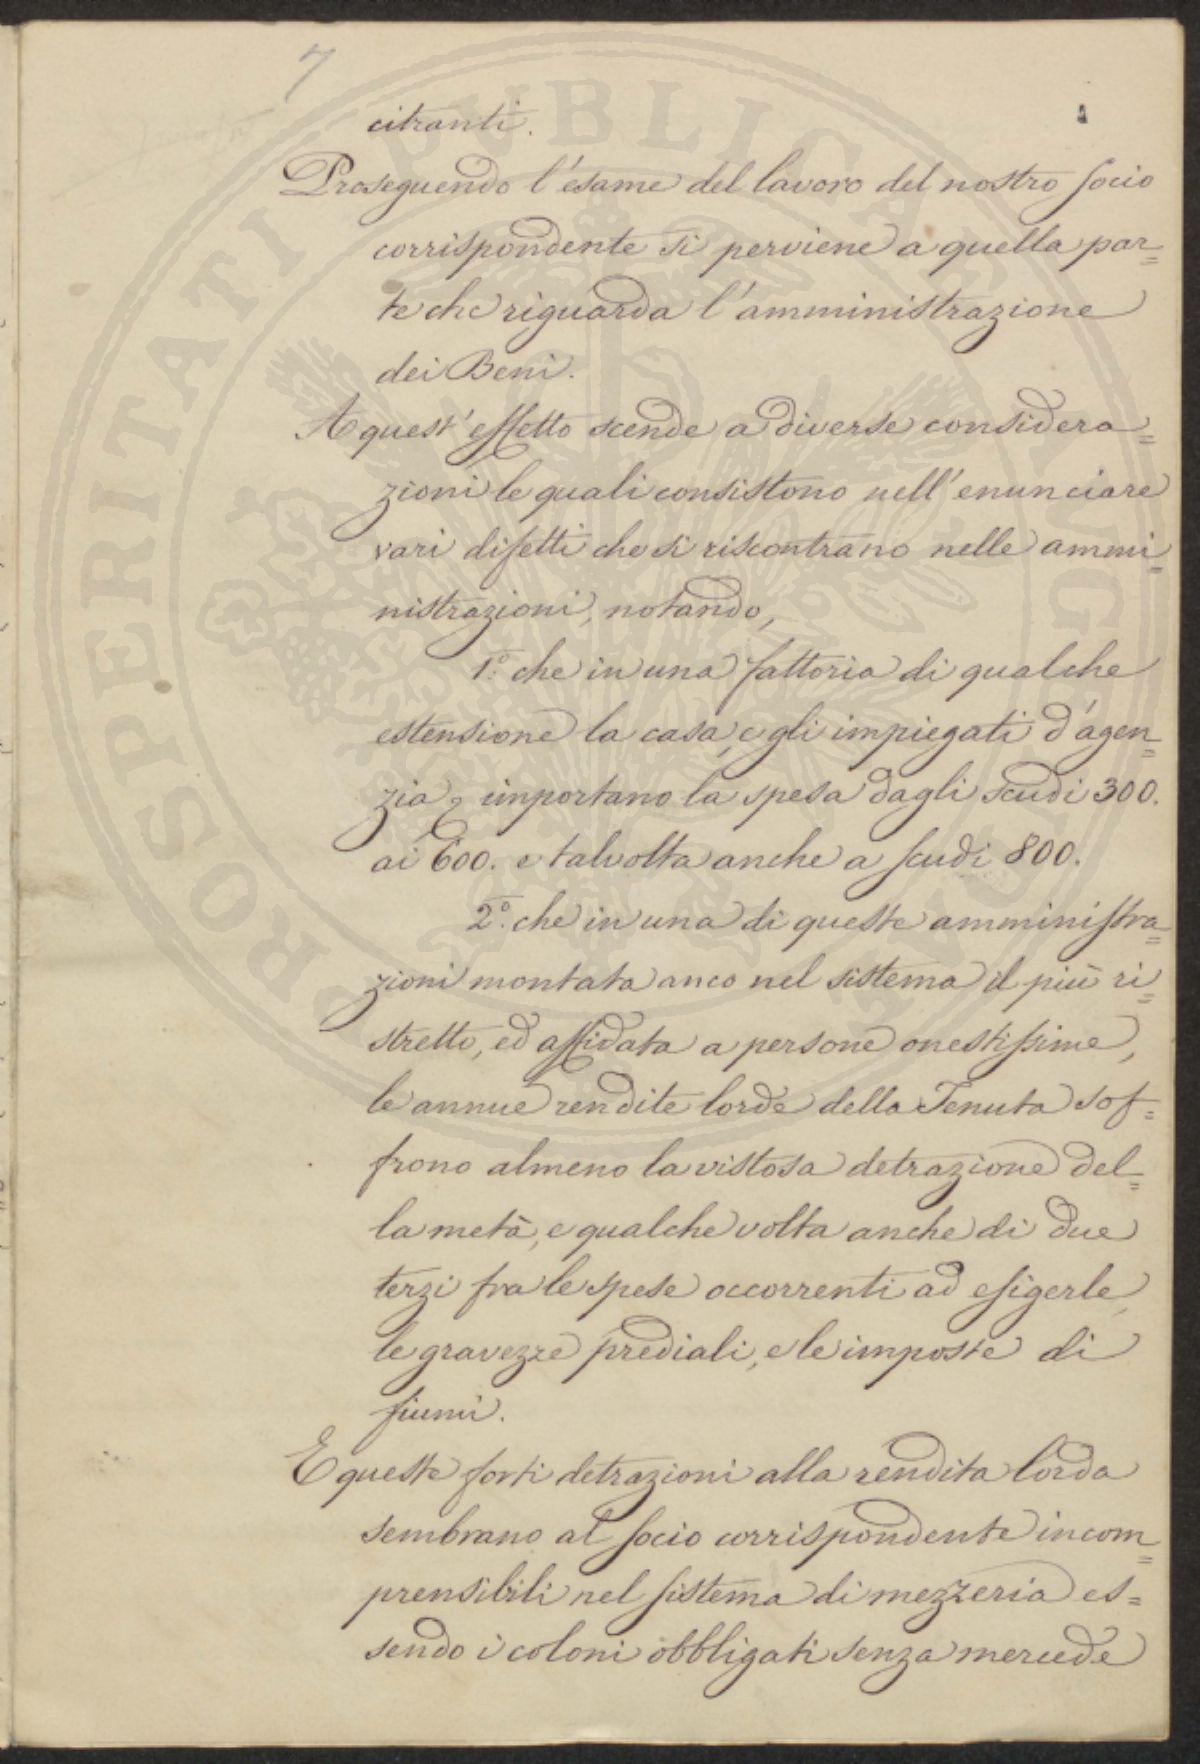 7
citranti.
Proseguendo l'esame del lavoro del nostro socio
corrispondente si perviene a quella par=
te che riguarda l'amministrazione
dei Beni.
A quest'effetto scende a diverse considera=
zioni le quali consistono nell'enunciare
vari difetti che si riscontrano nelle ammi=
nistrazioni, notando,
1.° che in una fattoria di qualche
estensione la casa, e gli impiegati d'agen=
zia, importano la spesa dagli scudi 300.
ai 600. e talvolta anche a scudi 800.
2.° che in una di queste amministra=
zioni montata anco nel sistema il più ri=
stretto, ed affidata a persone onestissime,
le annue rendite lorde della Tenuta sof=
frono almeno la vistosa detrazione del=
la metà, e qualche volta anche di due
terzi fra le spese occorrenti ad esigerle,
le gravezze prediali, e le imposte di
fiumi.
E queste forti detrazioni alla rendita lorda
sembrano al socio corrispondente incom=
prensibili nel sistema di mezzeria es=
sendo i coloni obbligati senza mercede
PROSPERITATI PUBLICAE AUGENDAE